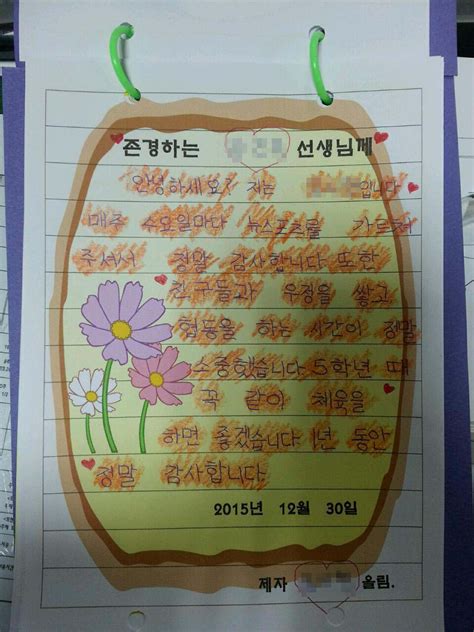 존경하는 선생님께
안녕하세요? 저는 입니다
매주 수요일마다 뉴스포츠를 가르쳐
주셔서 정말 감사합니다 또한
친구들과 우정을 쌓고
협동을 하는 시간이 정말
소중했습니다 5학년 때
꼭 같이 체육을
하면 좋겠습니다 1년 동안
정말 감사합니다.
2015년 12월 30일
제자 올림.